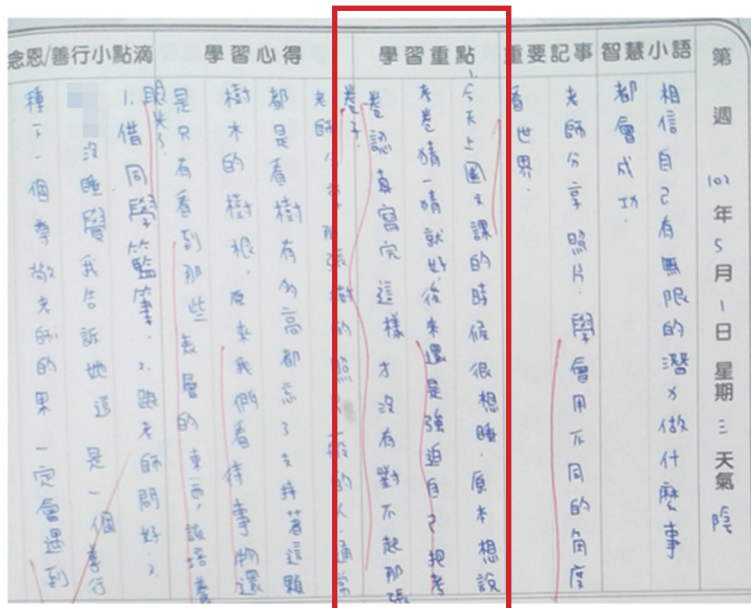 第 週 102年5月1日 星期三 天氣陰
智慧小語
相信自己有無限的潛力做什麼事
都會成功.
重要記事
老師分享照片.學會用不同的角度
看世界.
學習重點
今天上國文課的時候很想睡.原本想說
考卷猜一猜就好後來還是強迫自己把考
卷認真寫完這樣才沒有對不起那張
卷子.
學習心得
老師分享那張樹的照片一般的人通常
都是看樹有多高都忘了支持著這顆
樹木的樹根.原來我們看待事物還
是只有看到那些表層的東西,該培養
眼光了.
念恩/善行小點滴
1.借同學藍筆.2.跟老師問好.3.
沒睡覺我告訴她這是一個善行
種下一個尊敬老師的果一定會遇到